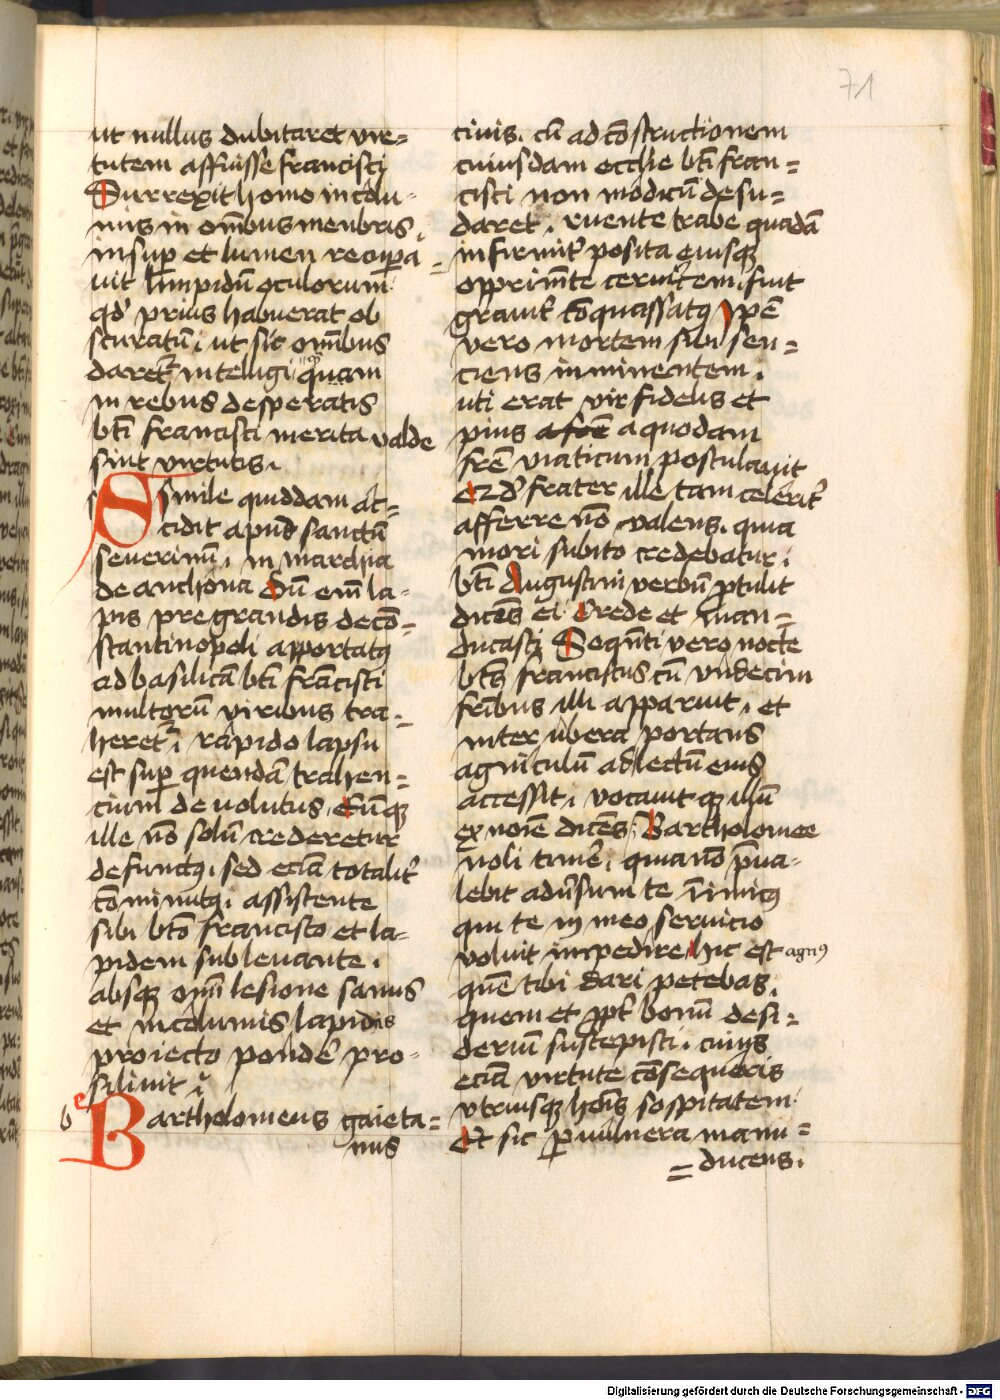 71
ut nullus dubitaret vir=
tutem affuisse francisci
Surrexit homo incolu-
mis in om̄ibus menbris,
insup et lumen recupera=
uit limpidū oculorum
qd' prius habuerat ob
scuratū, ut sic om̄ibus
daret' intelligi quam
in rebus desperatis
bti francisci merita valde
sint virtutis.
Simile quiddam ac=
cidit apud sanctū
seuerinū, in marchia
de anchona Cū em̄ la-
pis pregrandis de cō=
stantinopoli apportatꝰ
ad basilicā bti frācisci
multorū viribus tra=
heret', rapido lapsu
est sup quendā trahen=
cium deuolutus, Cūqꝫ
ille nō solū crederetur
defunctꝰ, sed eciā totalit'
cōminutꝰ, assistente
sibi bto francisco et la-
pidem subleuante,
absqꝫ om̄i lesione sanus
et incolumis lapidis
proiecto ponder' pro-
siliuit
b Bartholomeus gaieta=
nus
ciuis, cū ad cōstructionem
cuiusdam ecclie bti fran=
cisci non modicū desu=
daret, ruente trabe quadā
infirmit' posita eiusqꝫ
opprimēte ceruicem, fuit
grauit' cōquassatꝰ
vero mortem sibi sen=
ciens inminentem,
uti erat vir fidelis et
pius a quodam
frē viaticum postulauit
frater ille tam celerit'
afferre nō valens, quia
mori subito credebatur,
bti Augustini verbū ptulit
dicēs ei Crede et man=
ducasti Seqn̄ti vero nocte
btꝰ franciscus cū vndecim
fribus illi apparuit, et
inter ubera portans
agniculū ad lectū eius
accessit, vocauitqꝫ illū
ex noīe dicēs, Bartholomee
noli timē, quia nō p̄ua-
lebit aduersum te inimicꝰ
qui te in meo seruicio
voluit inpedire Hic est agnꝰ
quē tibi dari petebas,
quem et ppt' bonū desi=
deriū suscepisti, cuius
eciā virtute cōsequeris
vtriusqꝫ hoīs sospitatem
Et sic p vulnera manu=
=ducens,
Digitalisierung gefördert durch die Deutsche Forschungsgemeinschaft - DFG